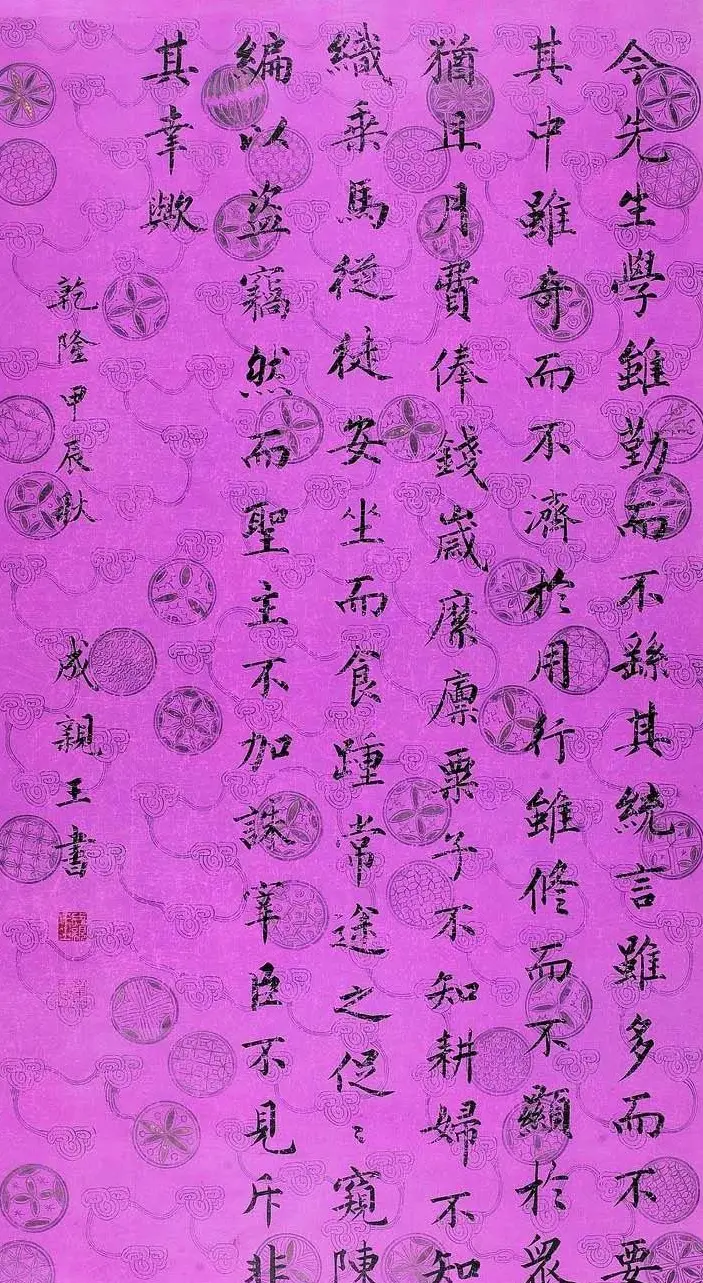 今先生學雖勤而不繇其統言雖多而不要
其中雖奇而不濟於用行雖修而不顯於眾
猶且月費俸錢歲糜廩粟子不知耕婦不知
織乘馬從徒安坐而食踵常途之促〻窺陳
編以盜竊然而聖主不加誅宰臣不見斥非
其幸歟
乾隆甲辰秋 成親王書